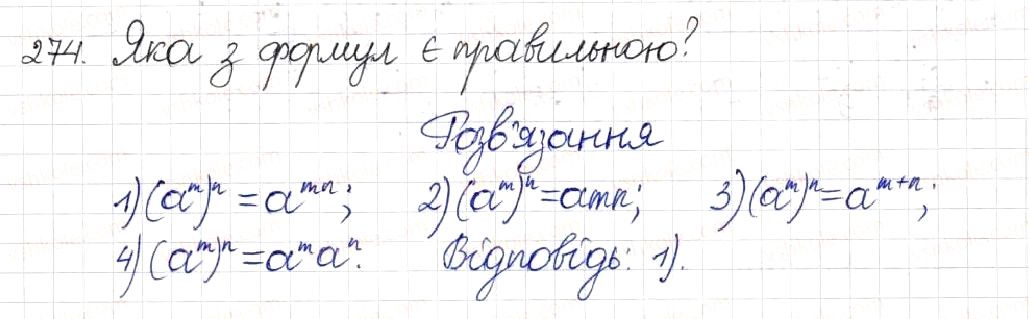 274. Яка з формул є правильною?
Розв'язання
1) (aᵐ)ⁿ = aᵐⁿ; 2) (aᵐ)ⁿ = amn; 3) (aᵐ)ⁿ = aᵐ⁺ⁿ;
4) (aᵐ)ⁿ = aᵐaⁿ. Відповідь: 1).